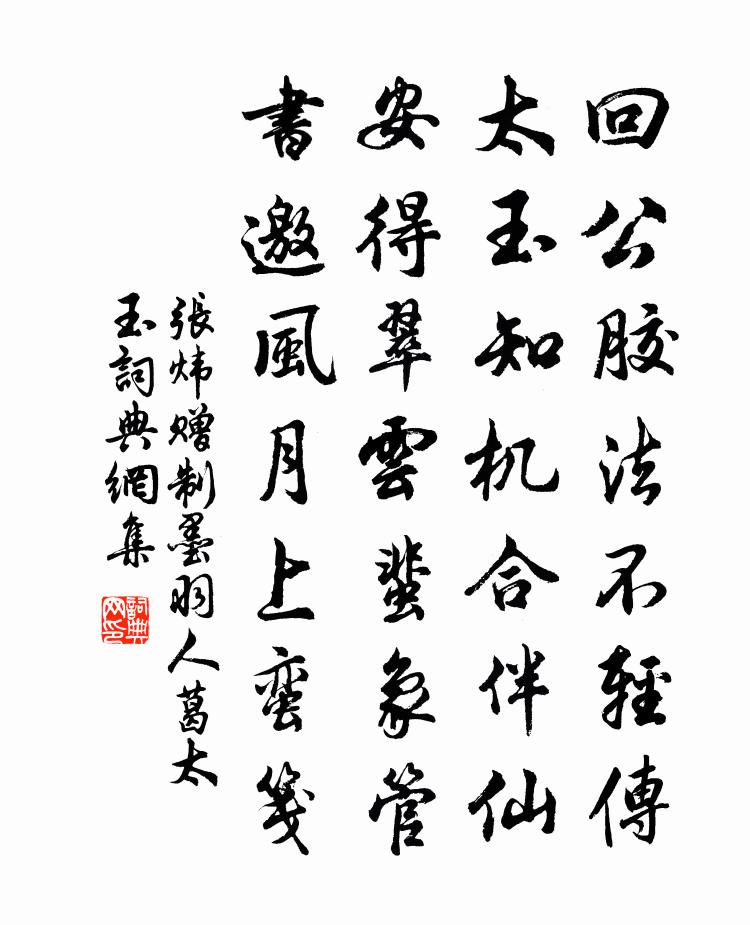 回公胶法不輕傳
太玉知机合伴仙
安得翠雲蜚象管
書邀風月上蛮箋
張炜贈制墨羽人葛太
玉詞典網集
詞典网印